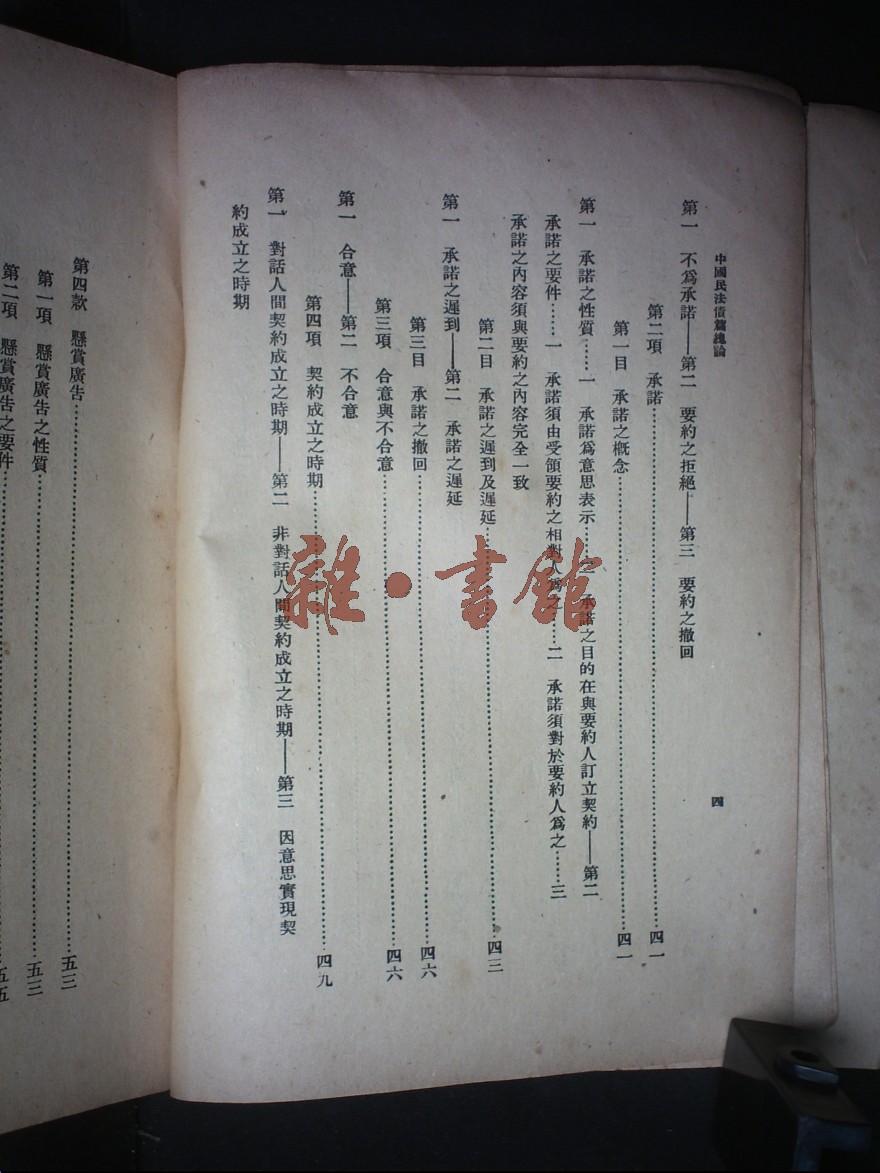 中國民法債篇總論
四
第一　不爲承諾——第二　要約之拒絕——第三　要約之撤回
第二項　承諾……四一
第一目　承諾之概念……四一
第一　承諾之性質……一　承諾爲意思表示……二　承諾之目的在與要約人訂立契約——第二
承諾之要件……一　承諾須由受領要約之相對人爲之……二　承諾須對於要約人爲之……三
承諾之內容須與要約之內容完全一致
第二目　承諾之遲到及遲延……四三
第一　承諾之遲到——第二　承諾之遲延
第三目　承諾之撤回……四六
第三項　合意與不合意……四六
第一　合意——第二　不合意
第四項　契約成立之時期……四九
第一　對話人間契約成立之時期——第二　非對話人間契約成立之時期——第三　因意思實現契
約成立之時期
第四款　懸賞廣告……五三
第一項　懸賞廣告之性質……五三
第二項　懸賞廣告之要件……五五
雜·書館